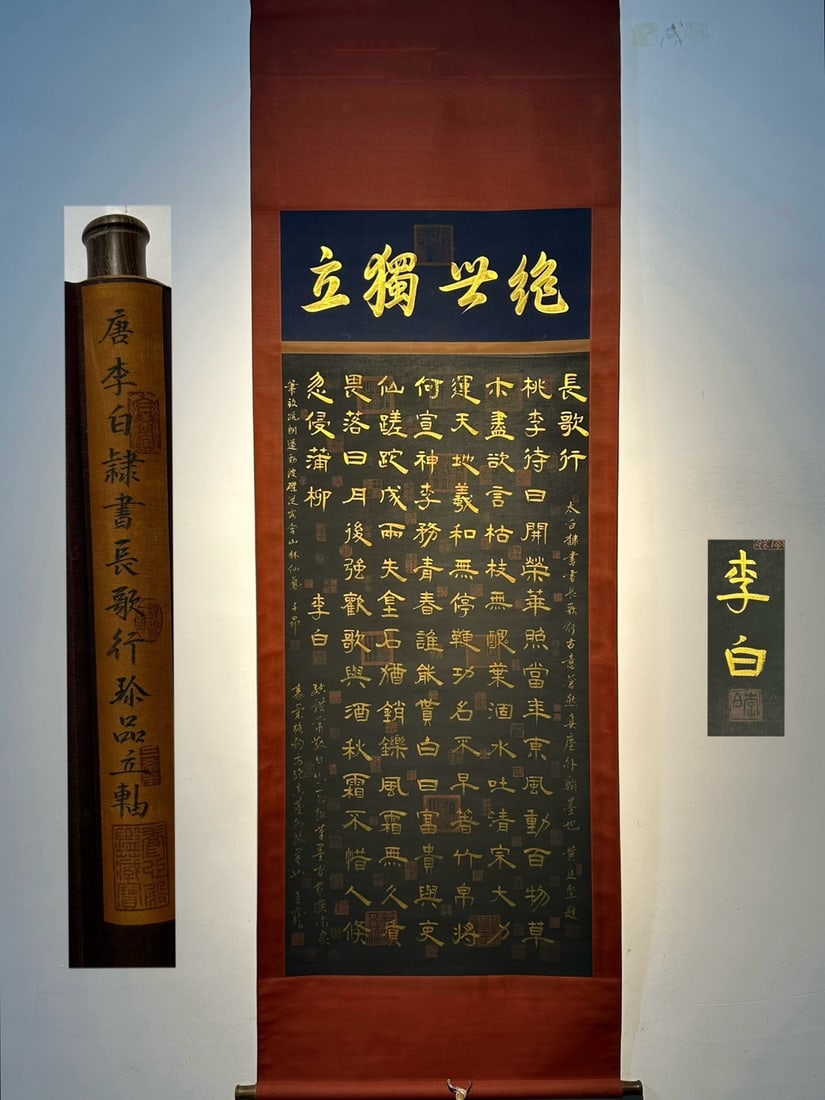 絶世獨立
長歌行
桃李待日開榮華照當年東風動百物草
木盡欲言枯枝無醜葉涸水吐清宗大力
運天地羲和無停鞭功名不早著竹帛將
何宣神李務青春誰能貰白日富貴與
仙蹉跎成兩失金石猶銷鑠風霜無久質
畏落日月後強歡歌與酒秋霜不惜人倏
忽侵蒲柳 李白
太白隸書書長歌行古意蒼然真塵外翰墨也 黃庭堅題
山林仙 子昂
唐李白隸書長歌行珍品立軸
李白